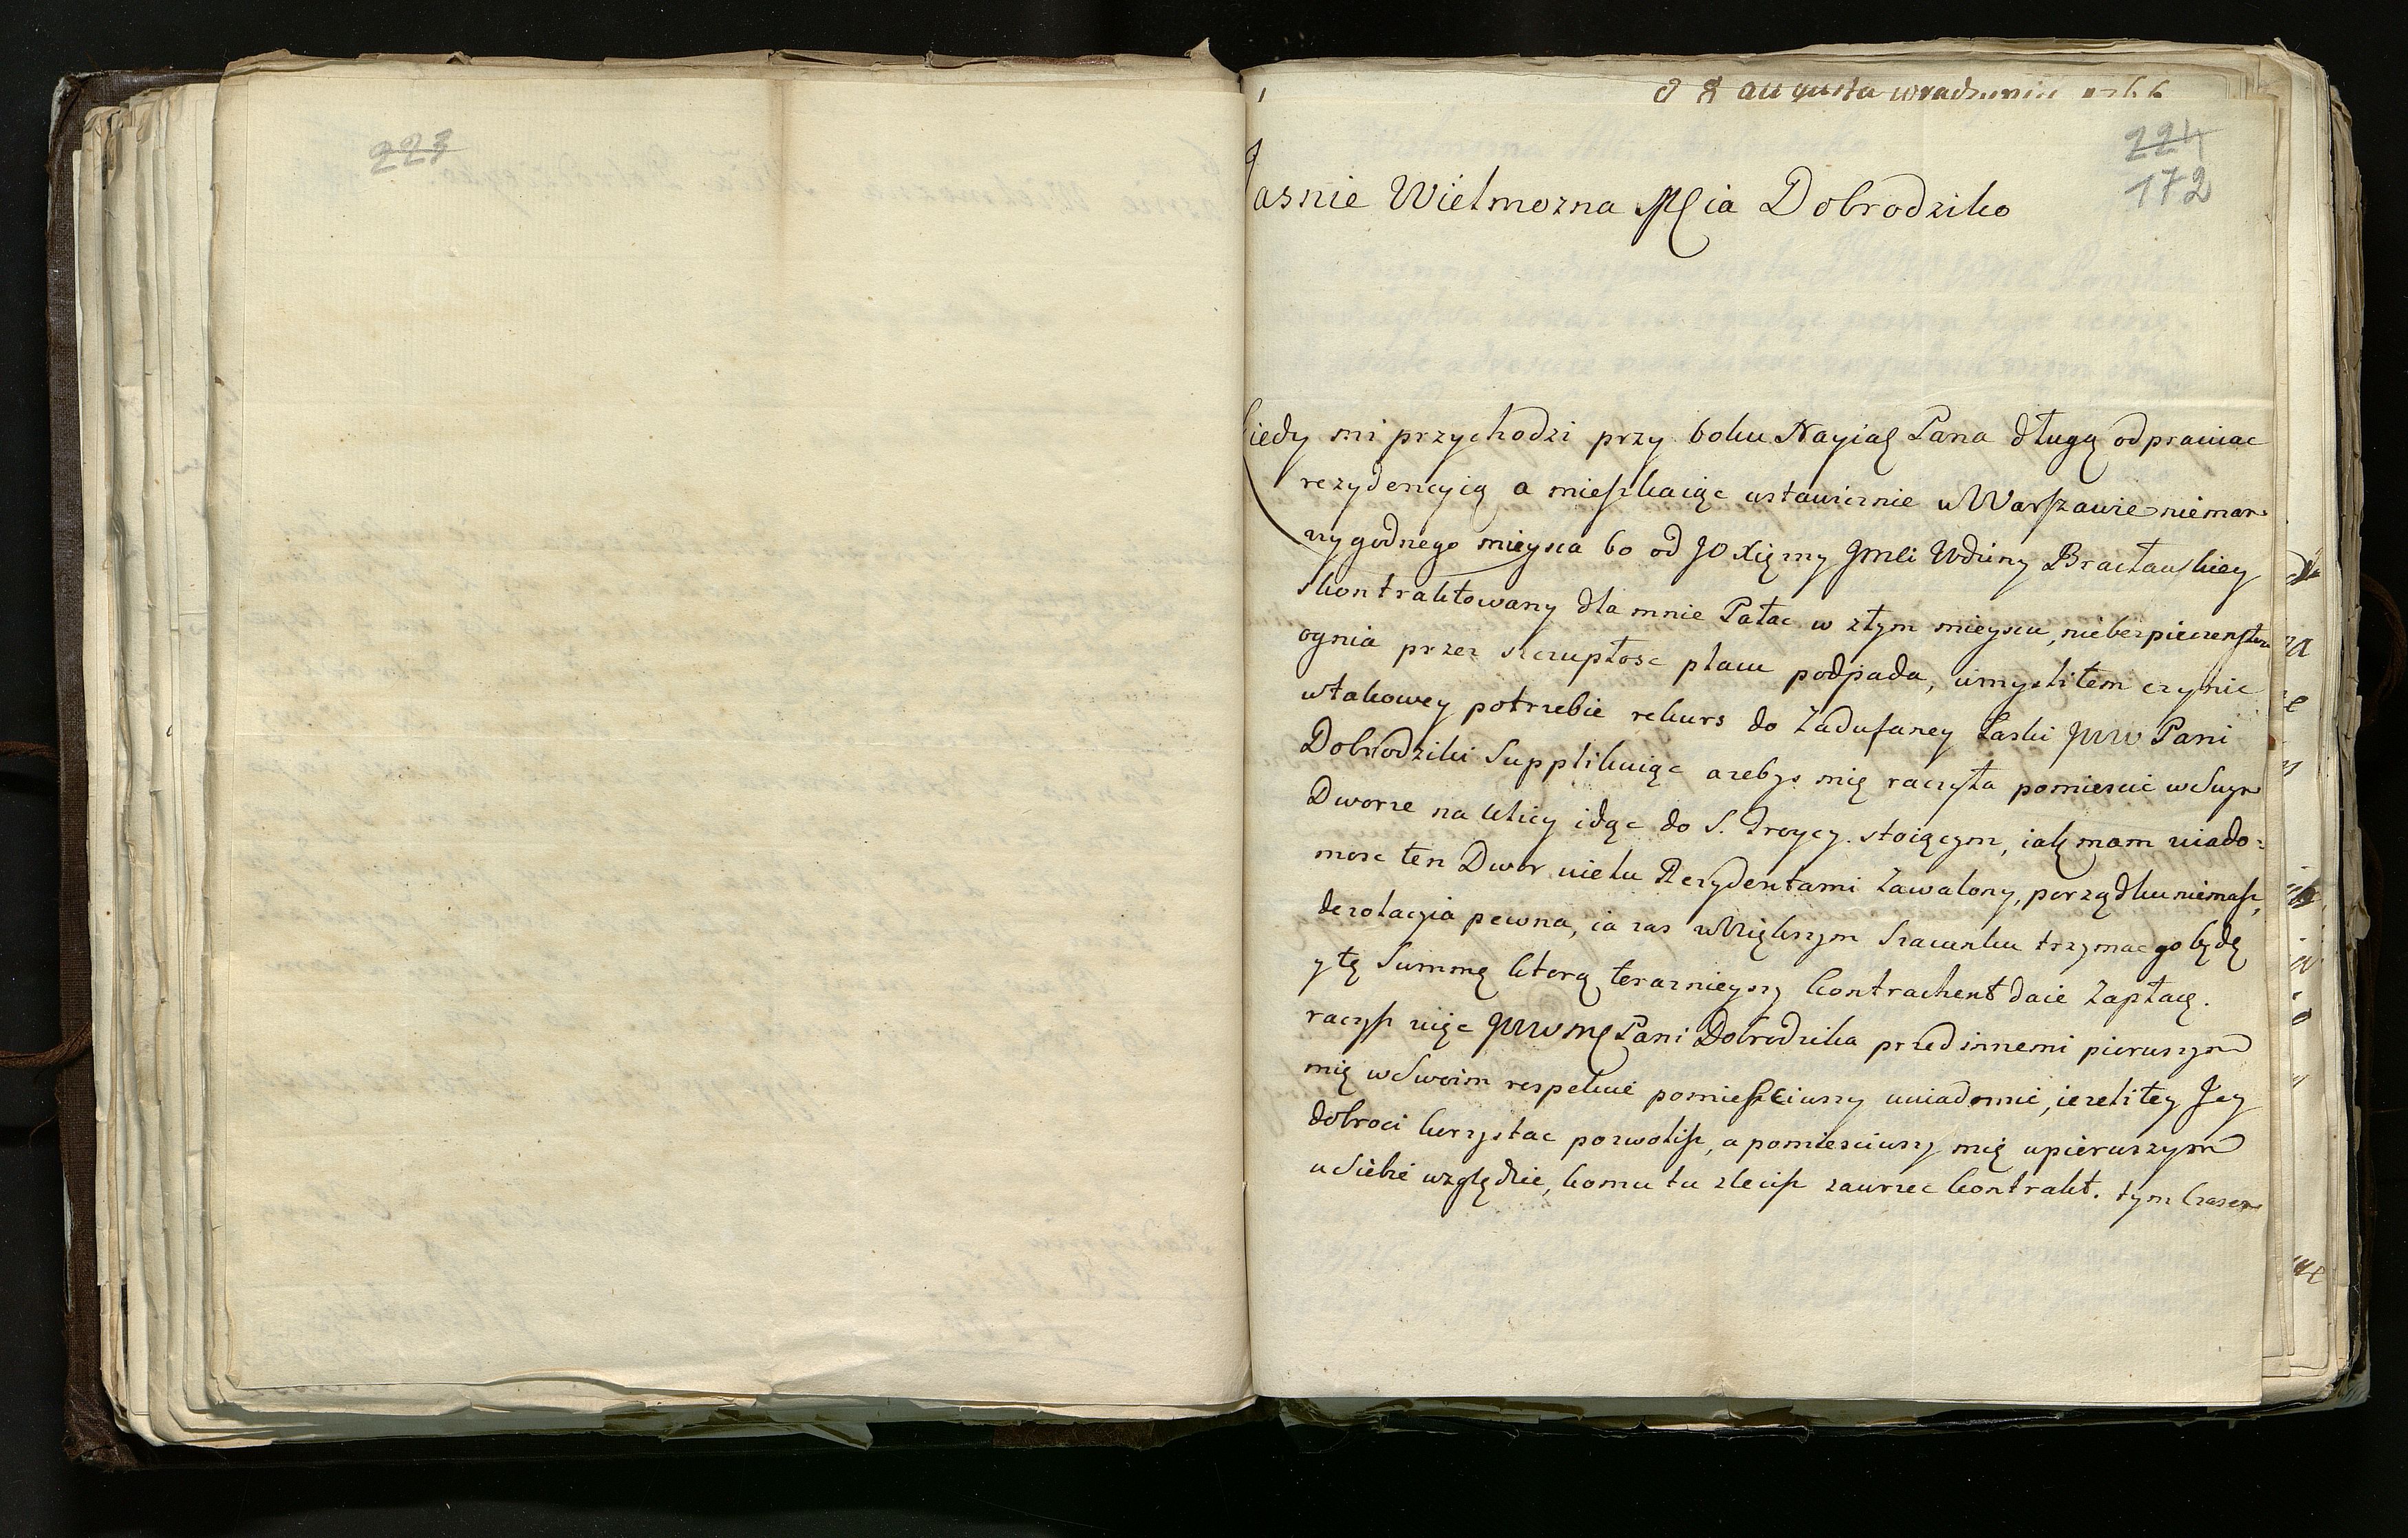 223
d 8 augusta wradzyniu 1766
224
172
Jasnie Wielmozna Mcia Dobrodziko
Kiedy mi przychodzi przy boku Nayias Pana długą odprawiac
rezydencyią a mieszkaiąc ustawicznie w Warszawie niemam
wygodnego mieysca bo od JO Xięzny Jmci Wdziny Bracławskiey
skontraktowany dla mnie Pałac w złym mieyscu, niebezpieczenstwu
ognia przez szczupłosc placu podpada, umysliłem czynic
wtakowey potrzebie rekurs do Zadufaney Łaski JWW Pani
Dobrodziki Supplikuiąc azebys mię raczyła pomiescic wSwym
Dworze na Ulicy idąc do S. Troycy. stoiącym, iak mam wiado:
mosc ten Dwor wielu Rezydentami Zawalony, porządku niemasz,
dezolacyia pewna, ia zas wWiększym Szacunku trzymac go będę
y tę Summę ktorą terazniejszy Kontrachent daie Zapłacę.
raczysz więc JWWMc Pani Dobrodzika przed innemi pierwszym
mię wSwoim respekcie pomieściwszy uwiadomic, iezeli tey Jey
dobroci korzystac pozwolisz, a pomiesciwszy mię wpierwszym
uSiebie względzie, komu tu zlecisz zawrzec Kontrakt. tym Czasem